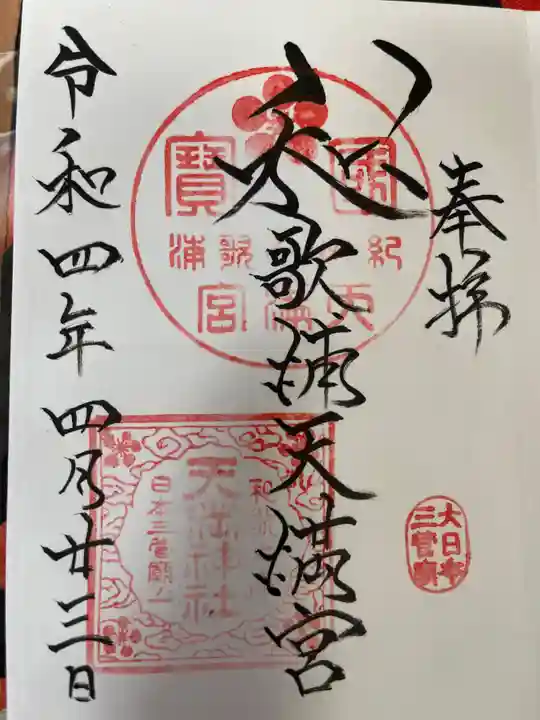 奉拝
和歌浦天満宮
令和四年四月廿三日
國寶
紀 歌浦
天満宮
天満神社
日本三菅廟
大日本
三菅廟